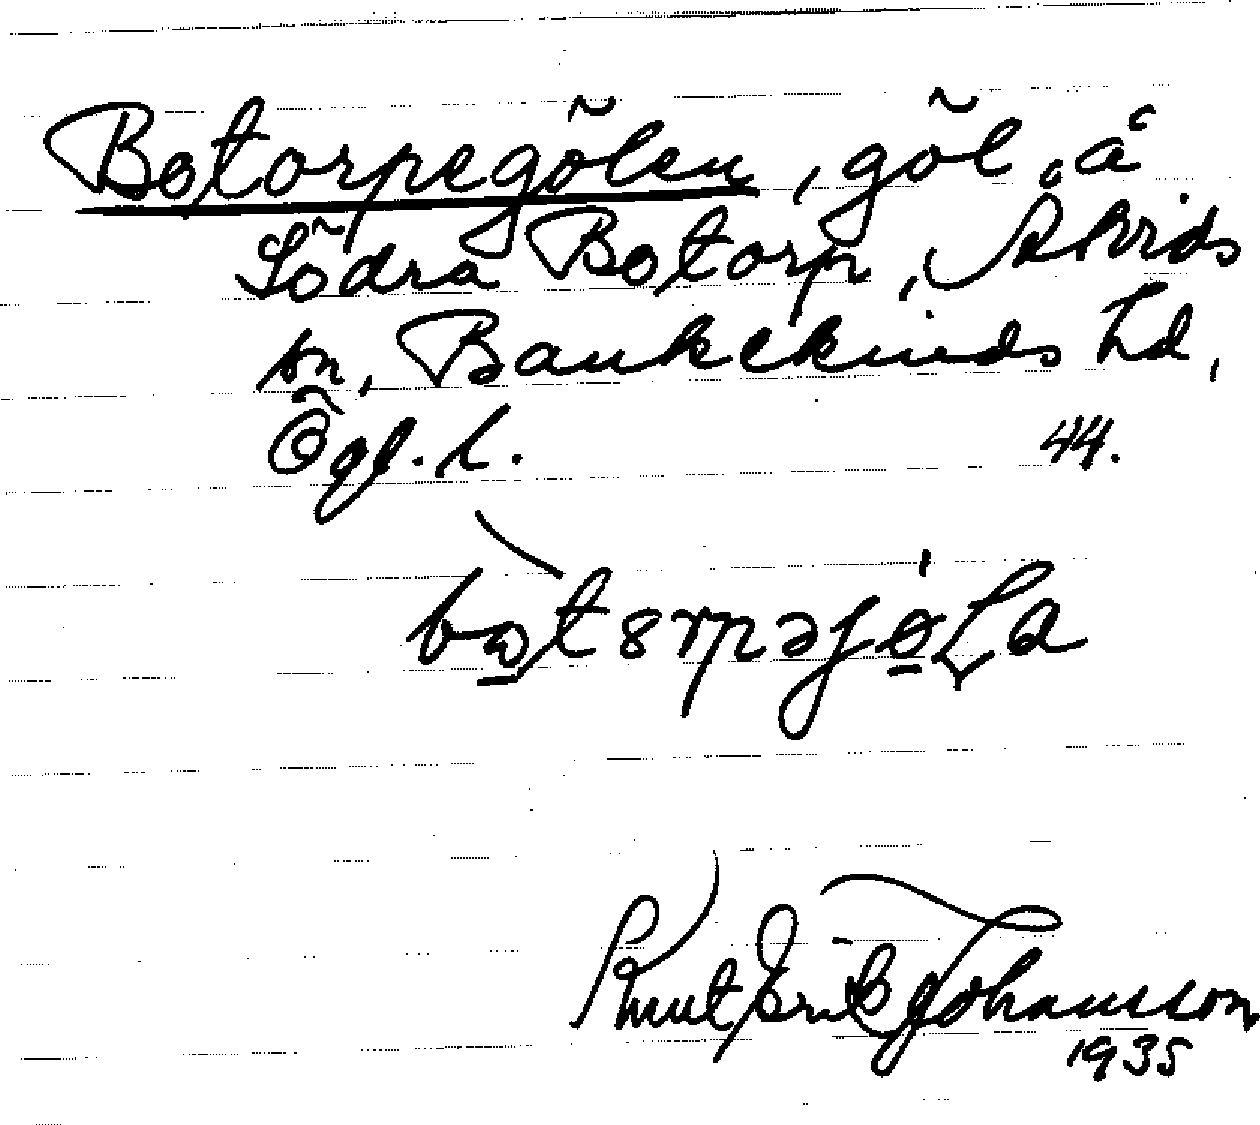 Botorpegölen, göl å
Södra Botorp, Åtvids
sn, Bankekinds hd,
Ögl. l. 44.
Knut Erik Johansson
1935